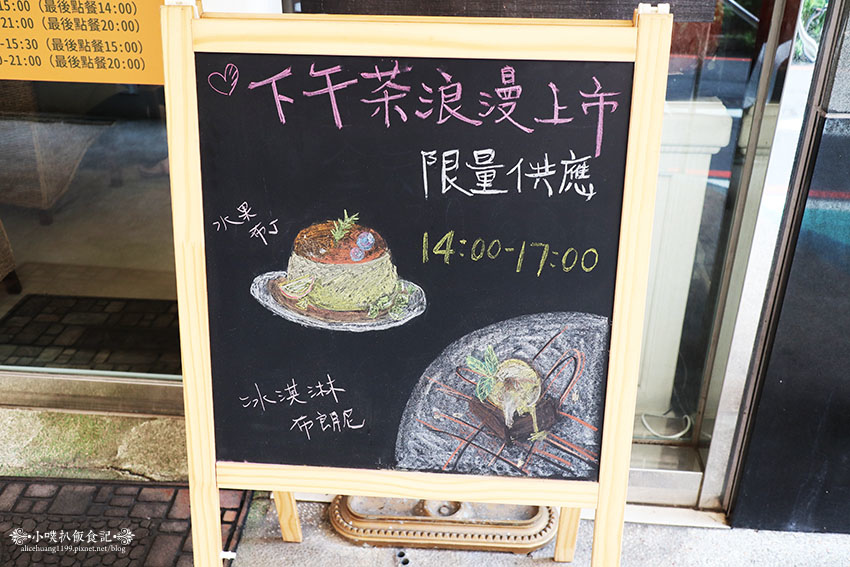 15:00（最後點餐14:00）
21:00（最後點餐20:00）
-15:30（最後點餐15:00）
-21:00（最後點餐20:00）
下午茶浪漫上市
限量供應
14:00-17:00
水果
布丁
冰淇淋
布朗尼
小噗扒飯食記
alicehuang1199.pixnet.net/blog